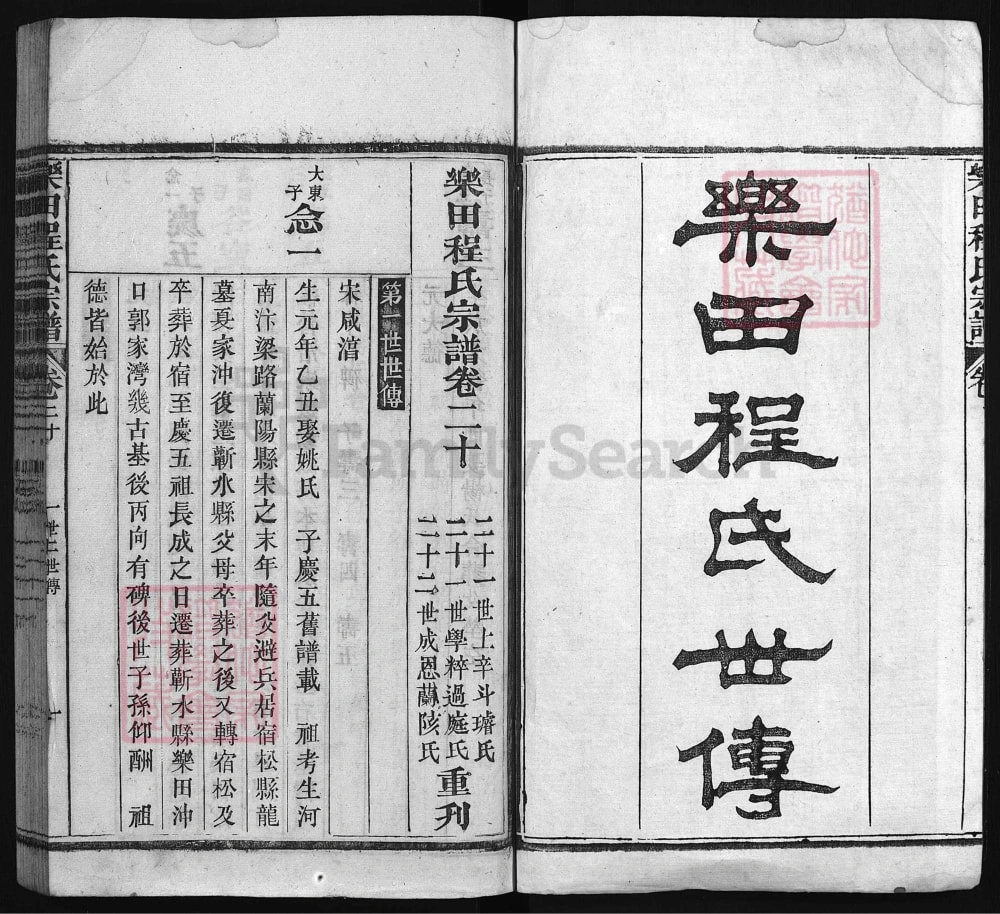 樂田程氏世傳
樂田程氏宗譜卷二十
二十一世上辛斗璿氏
二十一世學粹過庭氏
二十二世成恩蘭陔氏
重刊
第一世世傳
大東子
念一
宋咸淳
生元年乙丑娶姚氏 子慶五舊譜載 祖考生河
南汴梁路蘭陽縣宋之末年隨父避兵居宿松縣龍
墓夏家沖復遷蘄水縣父母卒葬之後又轉宿松及
卒葬於宿至慶五祖長成之日遷葬蘄水縣樂田沖
口郭家灣幾古基後丙向有碑後世子孫仰酬 祖
德皆始於此
樂田程氏宗譜
卷二十
一世世傳
一
樂田程氏宗譜
卷
FamilySearch